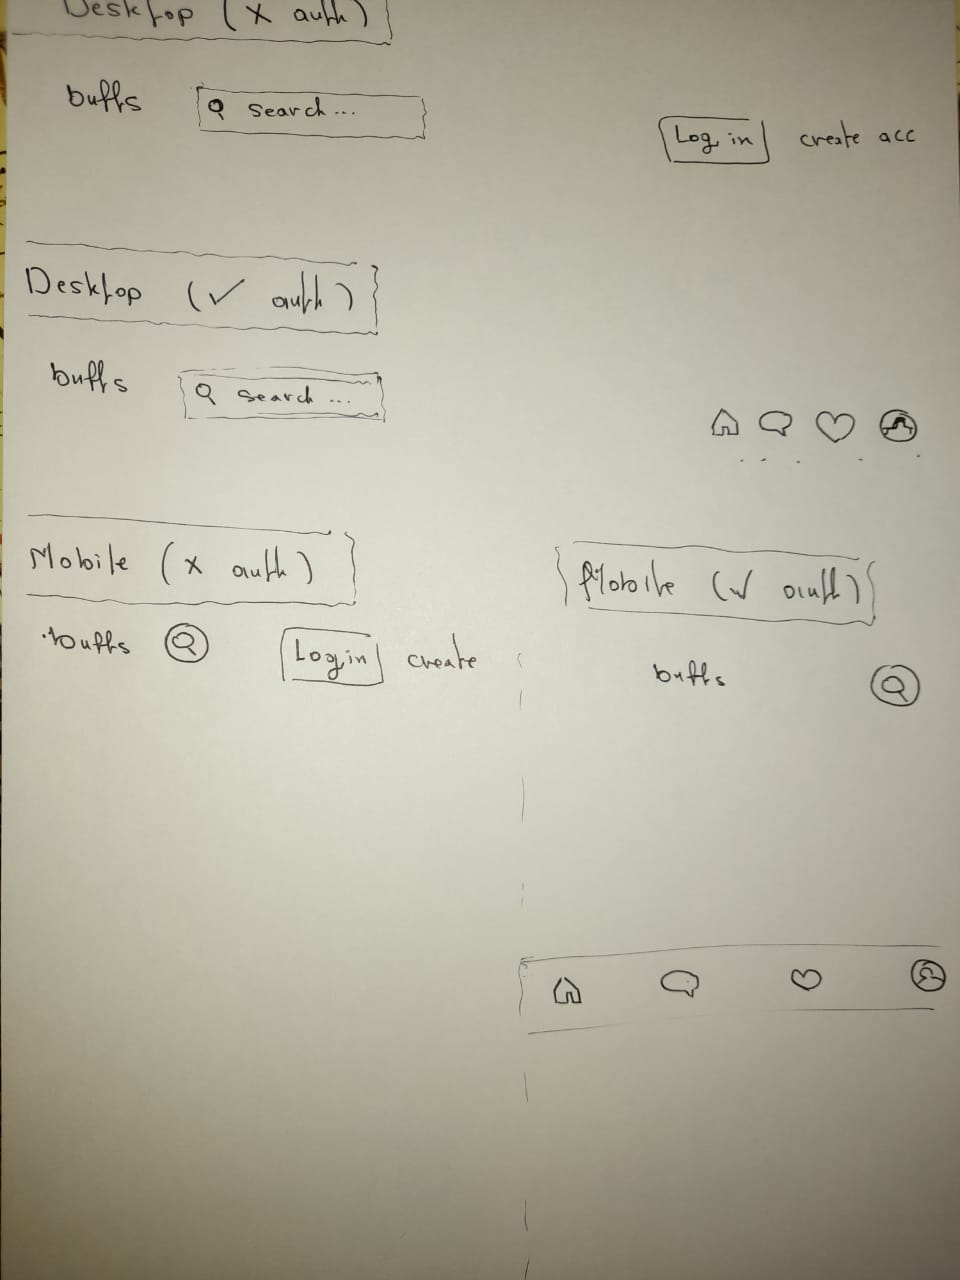 Desktop (x auth)
buffs Search...
Log in create acc
Desktop (✓ auth)
buffs Search...
Mobile (x auth)
Mobile (✓ auth)
buffs Log in create
buffs